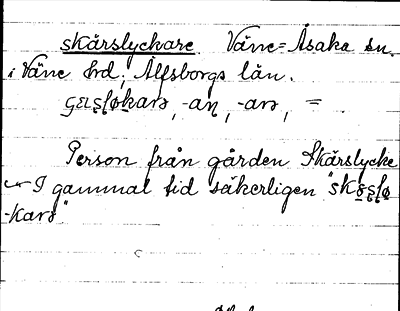 skårslyckare Väne-Åsaka sn.
i Väne hrd, Älfsborgs län.
-aɳ, -arə, =
Person från gården Skårslycke
I gammal tid säkerligen "skɷ̨ʂɭø
-karə"